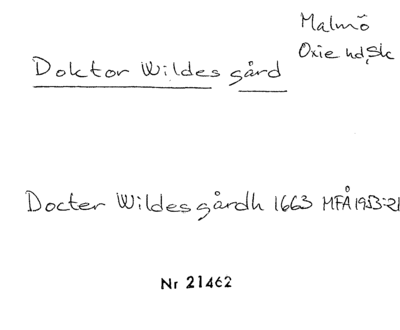 Malmö
Oxie hd, Sk
Doktor Wildes gård
Docter Wildes gårdh 1663 MFÅ 1953:21
Nr 21462